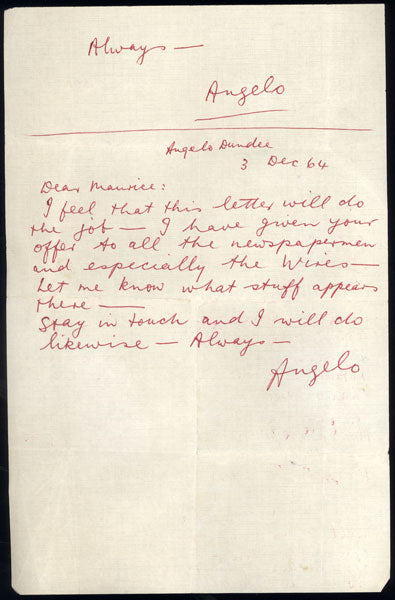 Always —
Angelo
Angelo Dundee
3 Dec 64
Dear Maurice:
I feel that this letter will do
the job — I have given your
offer to all the newspapermen
and especially the Wires —
Let me know what stuff appears
there —
Stay in touch and I will do
likewise — Always —
Angelo